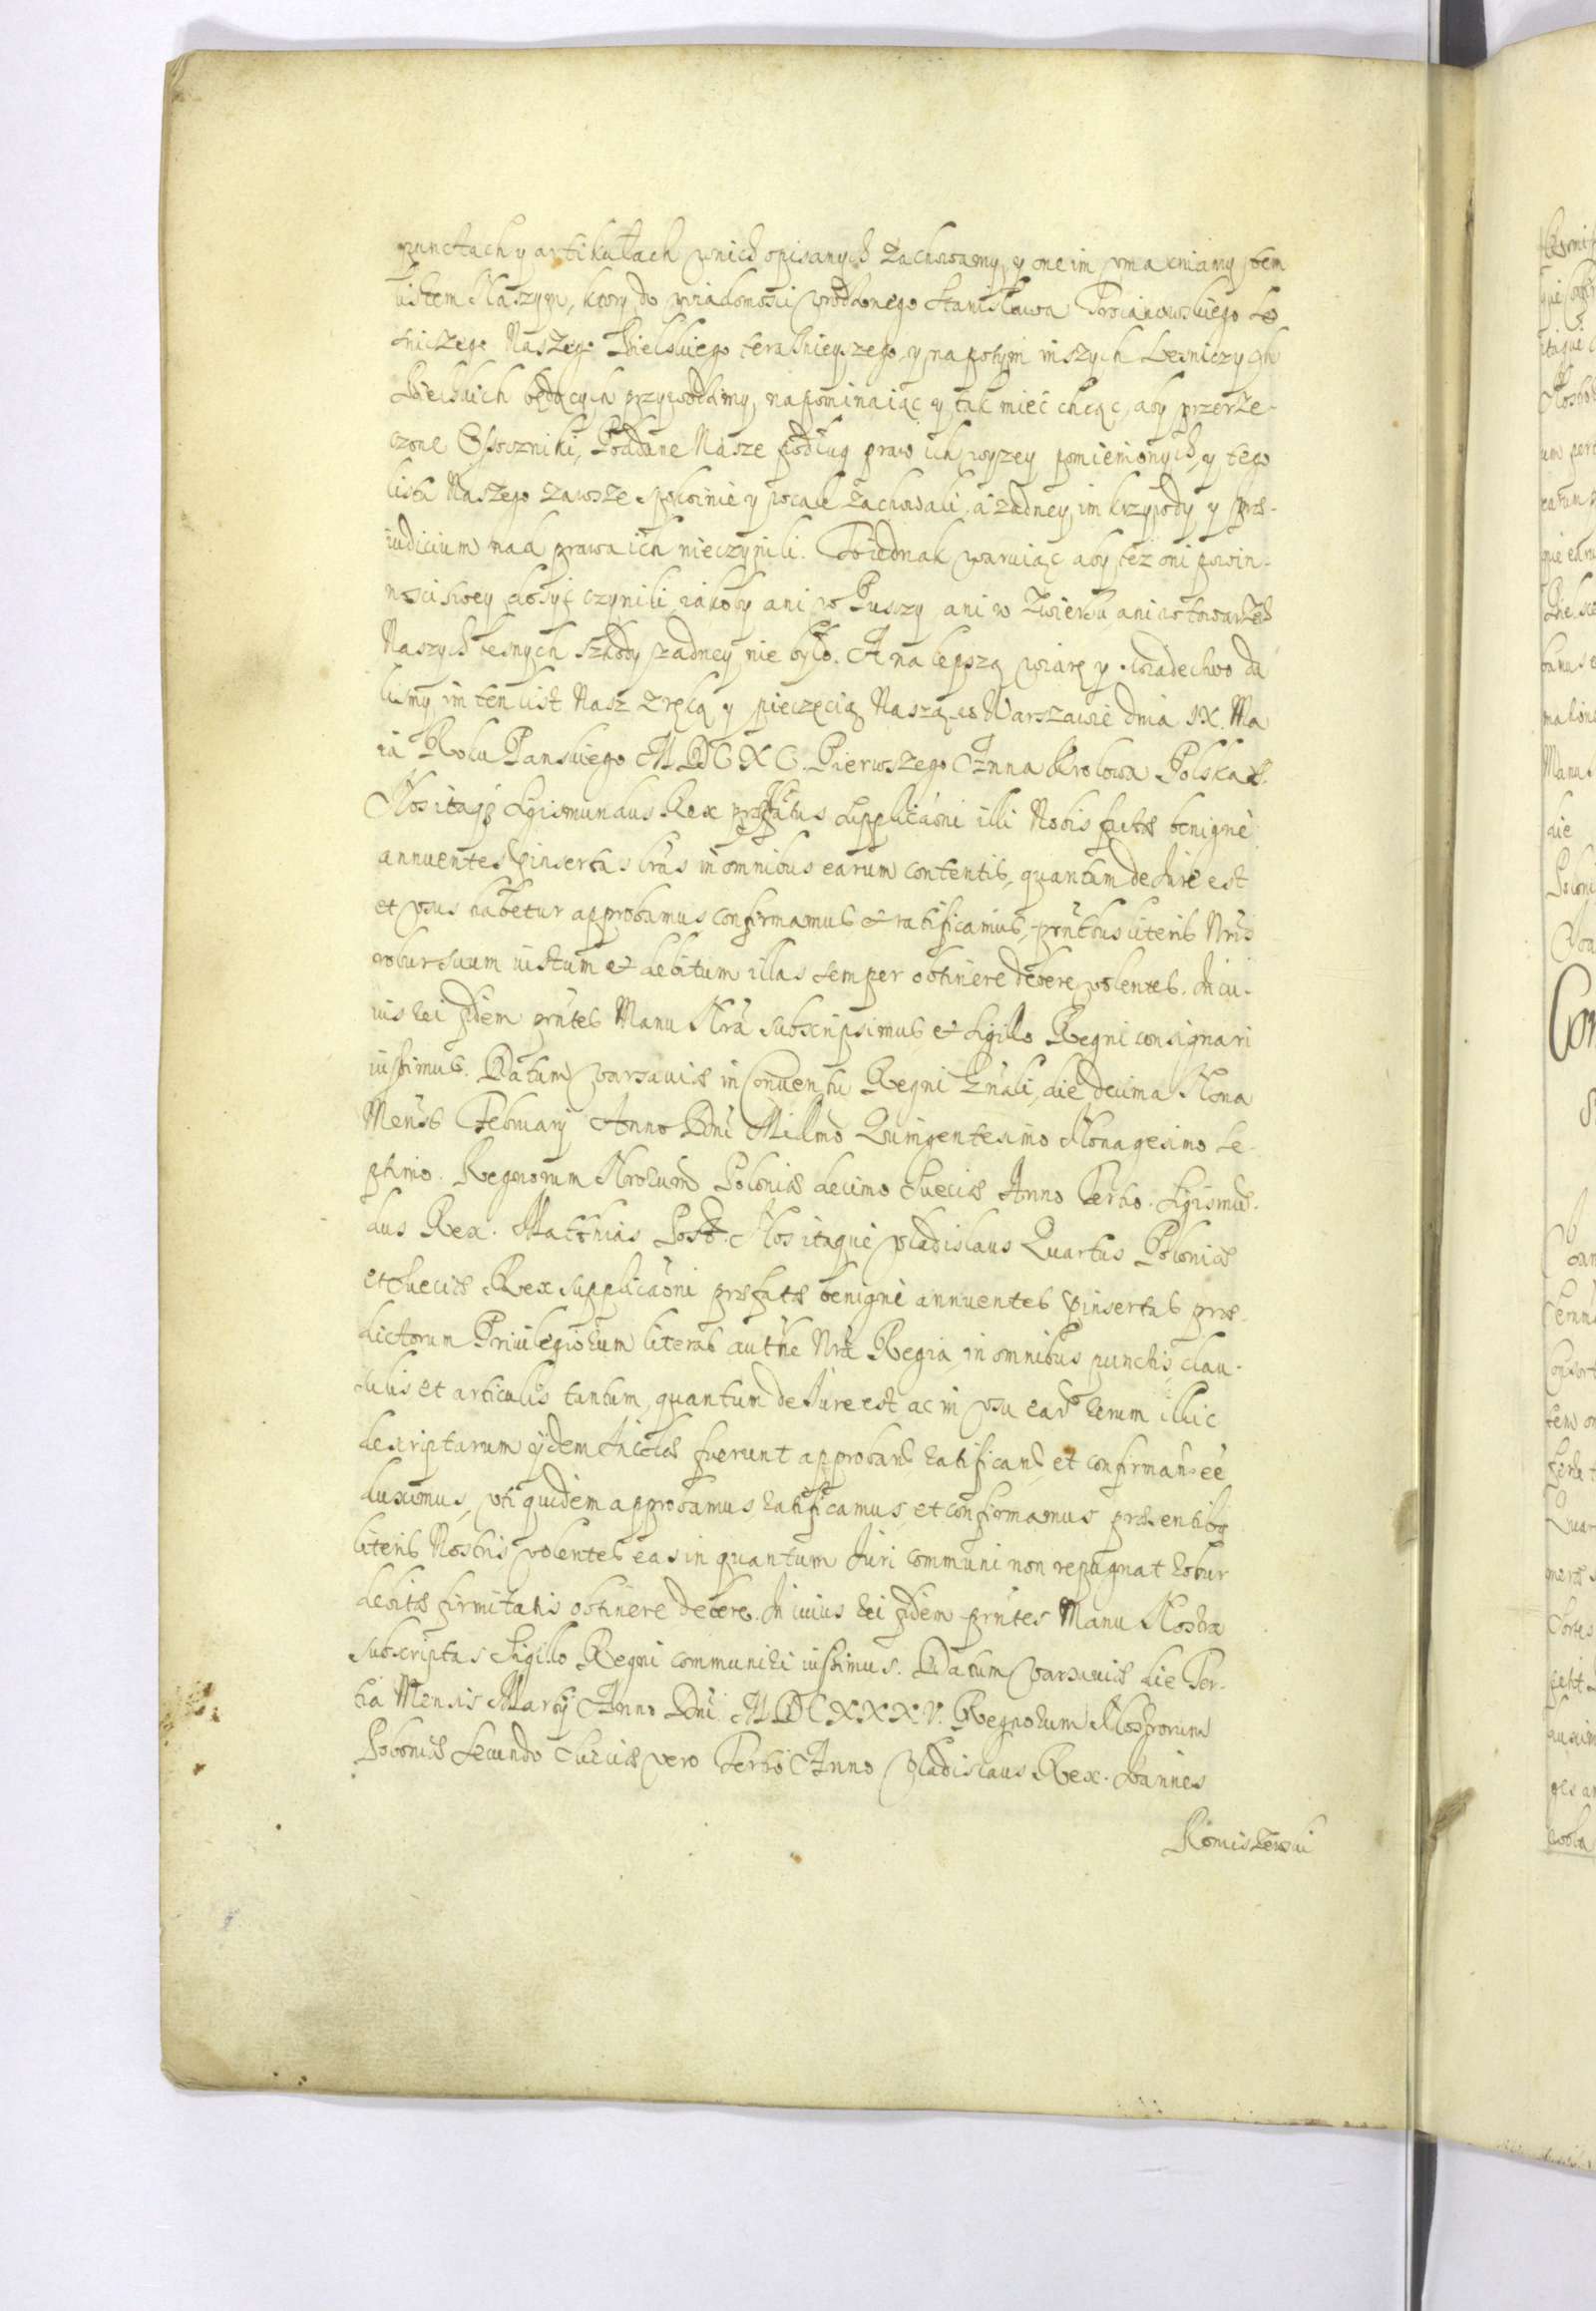 punctach y artikułach wnich opisanych zachowamy, y one im vmacniamy tem
listem Naszym, ktory do wiadomosci vrodzonego Stanisława Le
sniczego Naszego Bielskiego terasnieyszego, y napotym inszych Lesniczych
Bielskich będących przywodzimy, napominaiąc y tak mieć chcąc, aby przerze-
czone Osoczniki, Poddane Nasze podług praw ich wyzey pomienionych, y tego
listu Naszego zawsze spokoinie y wcale zachowali, a żadney im krzywdy y præ-
iudicium nad prawa ich nieczynili. To iednak waruiąc aby też oni powin-
nosci swey dosyć czynili, iakoby ani w Puszy ani w Zwierzu, ani w towarzech
Naszych lesnych szkody żadney nie było. A na lepszą wiarę y swiadectwo da
lismy im ten list Nasz z ręką y pieczęcią Naszą. w Warszawie dnia IX. Ma
ia Roku Panskiego MDXC. Pierwszego Anna Krolowa Polska.
Nos itaqꝫ Sigismundus Rex præfatus supplicaoni illi Nobis factæ benigne
annuentes p̃insertas lr̃as in omnibus earum contentis, quantum de Iure est
et vsus habetur approbamus confirmamus et ratificamus, pr̃ntibus literis Nr̃is
robur suum iustum et debitum illas semper obtinere debere volentes. In cu-
ius rei fidem pr̃ntes Manu Nr̃a subscripsimus et Sigillo Regni consignari
iussimus. Datum Varsauiæ in Conuentu Regni Gn̄ali, die decima Nona
Mensis February Anno Dn̄i Millmo Quingentesimo Nonagesimo Se-
ptimo. Regnorum Nrorum Poloniæ decimo Sueciæ Anno Tertio. Sigismũ-
dus Rex. Matthias Nos itaque Vladislaus Quartus Poloniæ
et Sueciæ Rex supplicaoni præfatæ benigne annuentes p̃insertas præ-
dictorum Priuilegiorum literas autħte Nr̃a Regia, in omnibus punctis, clau-
sulis et articulis tantum, quantum de Iure est ac in vsu earũ rerum illic
descriptarum ijdem Incolæ fuerunt approband̃ ratificand̃ et confirmand̃ eē
duximus, vti quidem approbamus ratificamus et confirmamus præsentibꝫ
literis Nostris, volentes eas in quantum Iuri communi non repugnat robur
debitæ firmitatis obtinere debere. In cuius rei fidem pr̃ntes Manu Nostra
subscriptas Sigillo Regni communiri iussimus. Datum Varsauiæ die Ter-
tia Mensis Martij Anno Dn̄i MDCXXXV. Regnorum Nostrorum
Poloniæ Secundo Sueciæ vero Tertio Anno Vladislaus Rex. Ioannes
Romiszewski